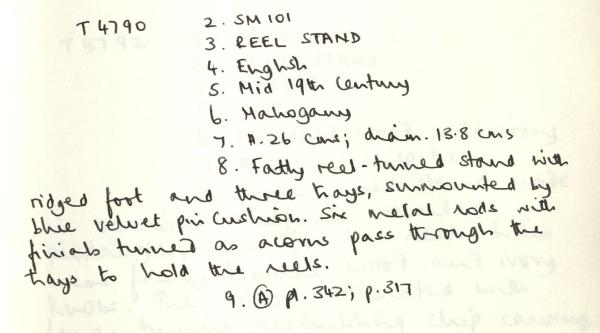 T 4790 2. SM 101
3. REEL STAND
4. English
5. Mid 19th Century
6. Mahogany
7. H. 26 cms; diam. 13.8 cms
8. Fatly reel-turned stand with
ridged foot and three trays, surmounted by
blue velvet pin cushion. Six metal rods with
finials turned as acorns pass through the
trays to hold the reels.
9. Ⓐ pl. 342; p. 317